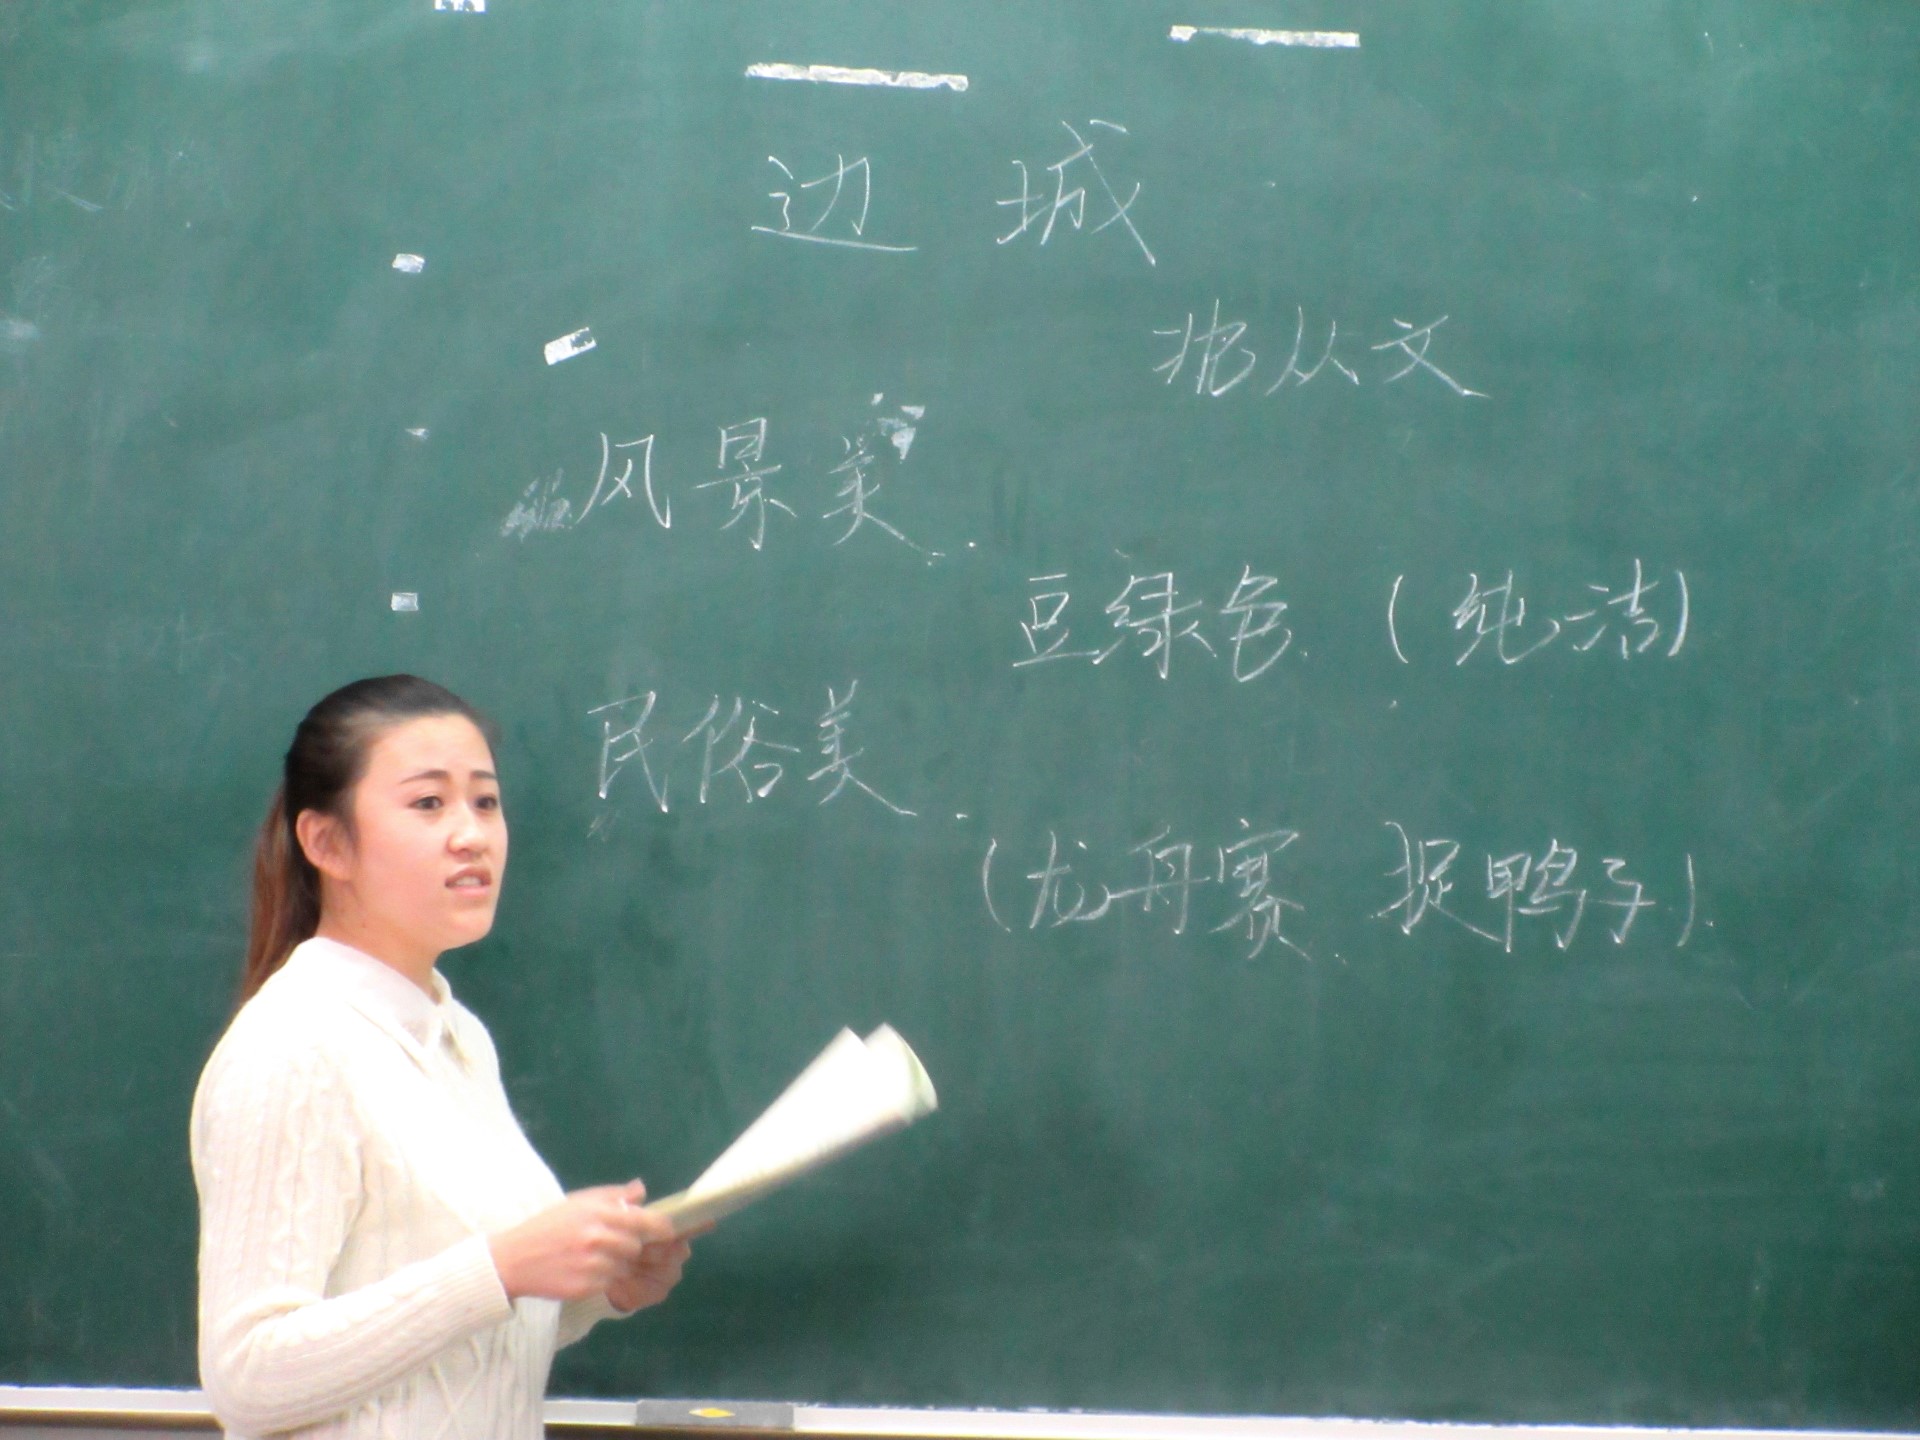 边城
沈从文
风景美.
豆绿色.(纯洁)
民俗美.
(龙舟赛、捉鸭子).